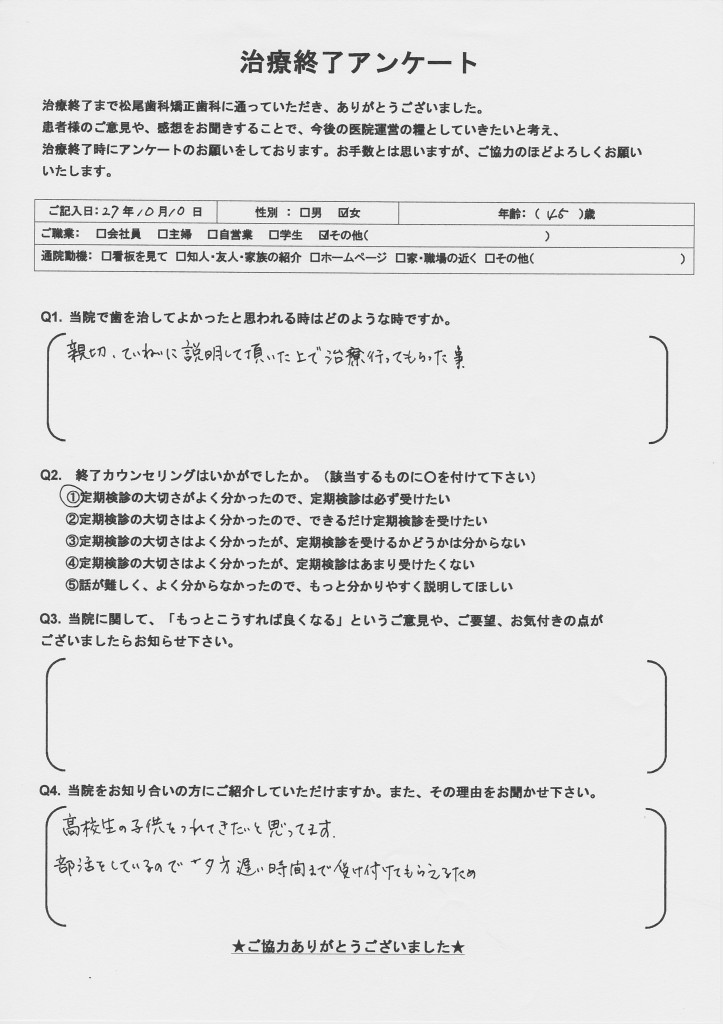 治療終了アンケート
治療終了まで松尾歯科矯正歯科に通っていただき、ありがとうございました。
患者様のご意見や、感想をお聞きすることで、今後の医院運営の糧としていきたいと考え、
治療終了時にアンケートのお願いをしております。お手数とは思いますが、ご協力のほどよろしくお願い
いたします。
ご記入日：27年10月10日 性別 ： □男 ☑女 年齢：（ 45 ）歳
ご職業： □会社員 □主婦 □自営業 □学生 ☑その他（ ）
通院動機：□看板を見て □知人・友人・家族の紹介 □ホームページ □家・職場の近く □その他（ ）
Q1. 当院で歯を治してよかったと思われる時はどのような時ですか。
親切、ていねいに説明して頂いた上で治療行ってもらった事
Q2. 終了カウンセリングはいかがでしたか。（該当するものに○を付けて下さい）
①定期検診の大切さがよく分かったので、定期検診は必ず受けたい
②定期検診の大切さはよく分かったので、できるだけ定期検診を受けたい
③定期検診の大切さはよく分かったが、定期検診を受けるかどうかは分からない
④定期検診の大切さはよく分かったが、定期検診はあまり受けたくない
⑤話が難しく、よく分からなかったので、もっと分かりやすく説明してほしい
Q3. 当院に関して、「もっとこうすれば良くなる」というご意見や、ご要望、お気付きの点が
ございましたらお知らせ下さい。
Q4. 当院をお知り合いの方にご紹介していただけますか。また、その理由をお聞かせ下さい。
高校生の子供をつれてきたいと思ってます.
部活をしているので夕方遅い時間まで受け付けてもらえるため
★ご協力ありがとうございました★